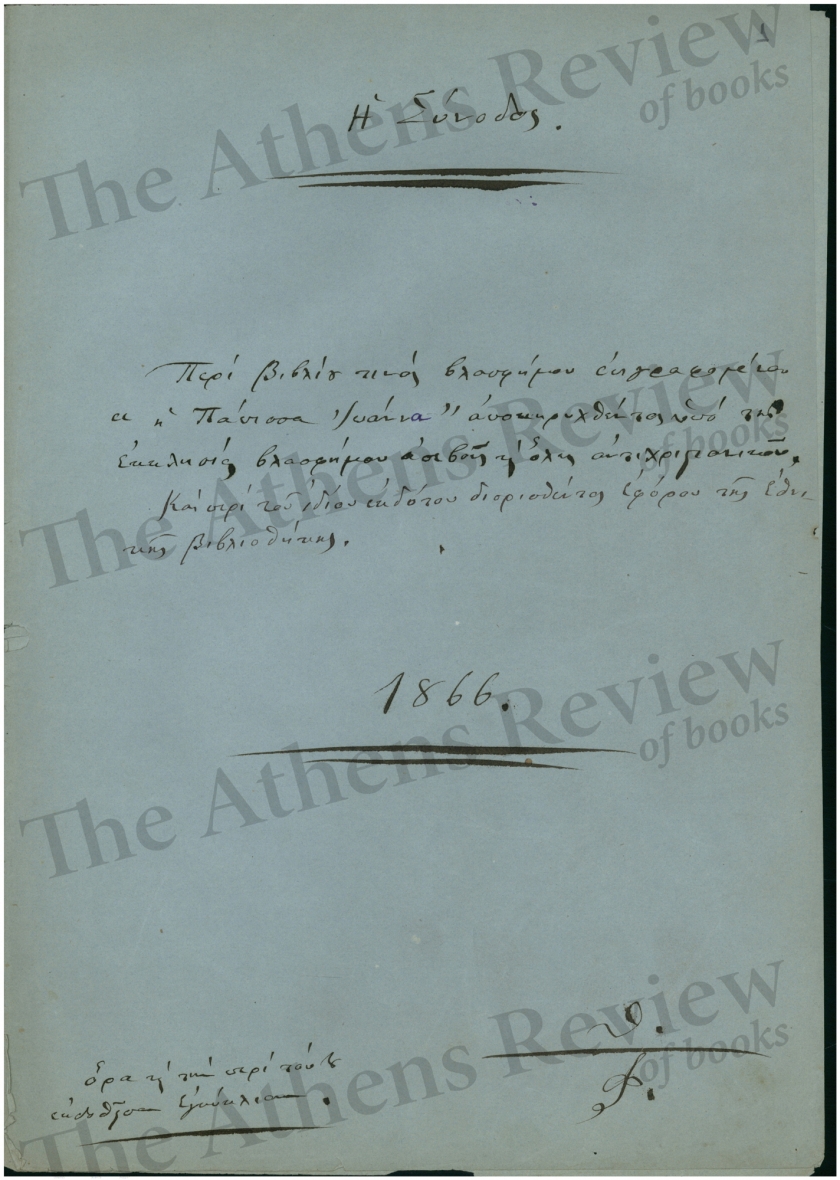 Ἡ Σύνοδος.
Περί βιβλίου τινός βλασφήμου ἐπιγραφομένου
« ἡ Πάπισσα Ἰωάννα" ἀποκηρυχθέντος ὑπό της
ἐκκλησίας βλασφήμου ἀσεβοῦς κ̀ ὅλως ἀντιχριστιανικοῦ.
Καί περί τοῦ ἰδίου ἐκδότου διορισθέντος Ἐφόρου τῆς Ἐθνι-
κῆς βιβλιοθήκης.
1866.
ὅρα κ̀ τήν περί τούτου
ἐκδοθεῖσαν Ἐγκύκλιον.
Θ.
Φ.
The Athens Review
of books
The Athens Review
of books
The Athens Review
of books
The Athens Review
of books